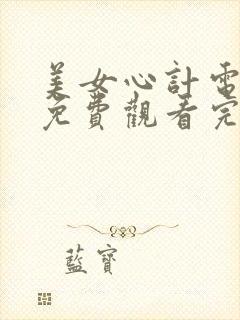 美女心計電
免費觀看完
藍寶